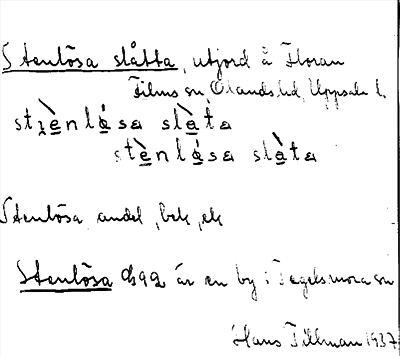 Stenlösa slåtta, utjord å Floran
Films sn, Olands hd, Uppsala l.
stenlösa slåta
stenlösa slåta
Stenlösa, andel, bek, ek
Stenlösa är en by i Tegelsmora sn
Hans Tillman 1937